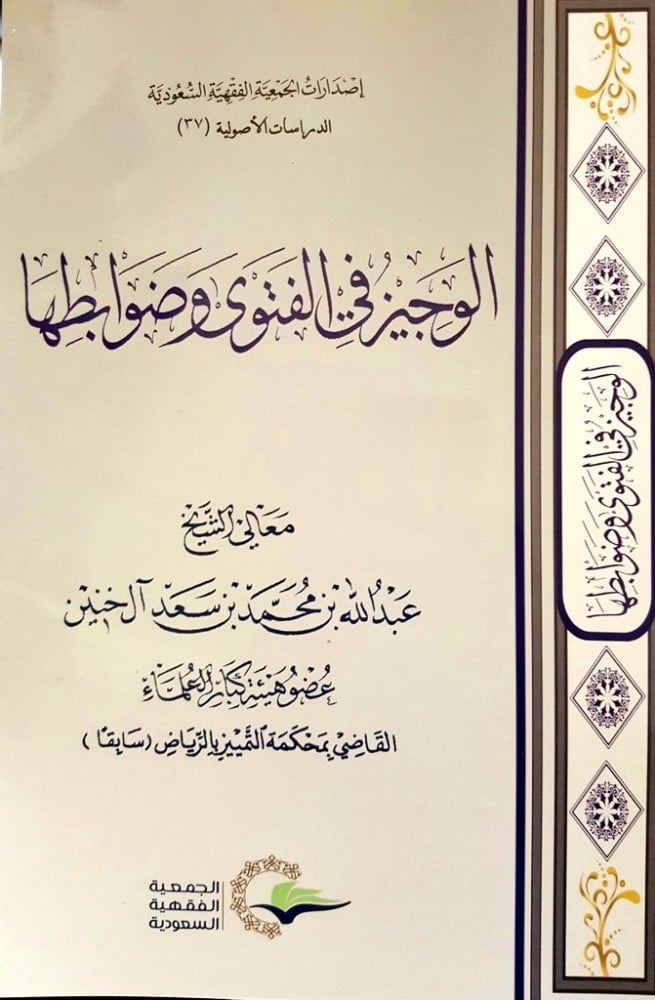 إصدارات الجمعية الفقهية السعودية
الدراسات الأصولية (٣٧)
الوجيز في الفتوى وضوابطها
معالي الشيخ
عبد الله بن محمد بن سعد آل خنين
عضو هيئة كبار العلماء
القاضي بمحكمة التمييز بالرياض (سابقا)
الجمعية
الفقهية
السعودية
الوجيز في الفتوى وضوابطها